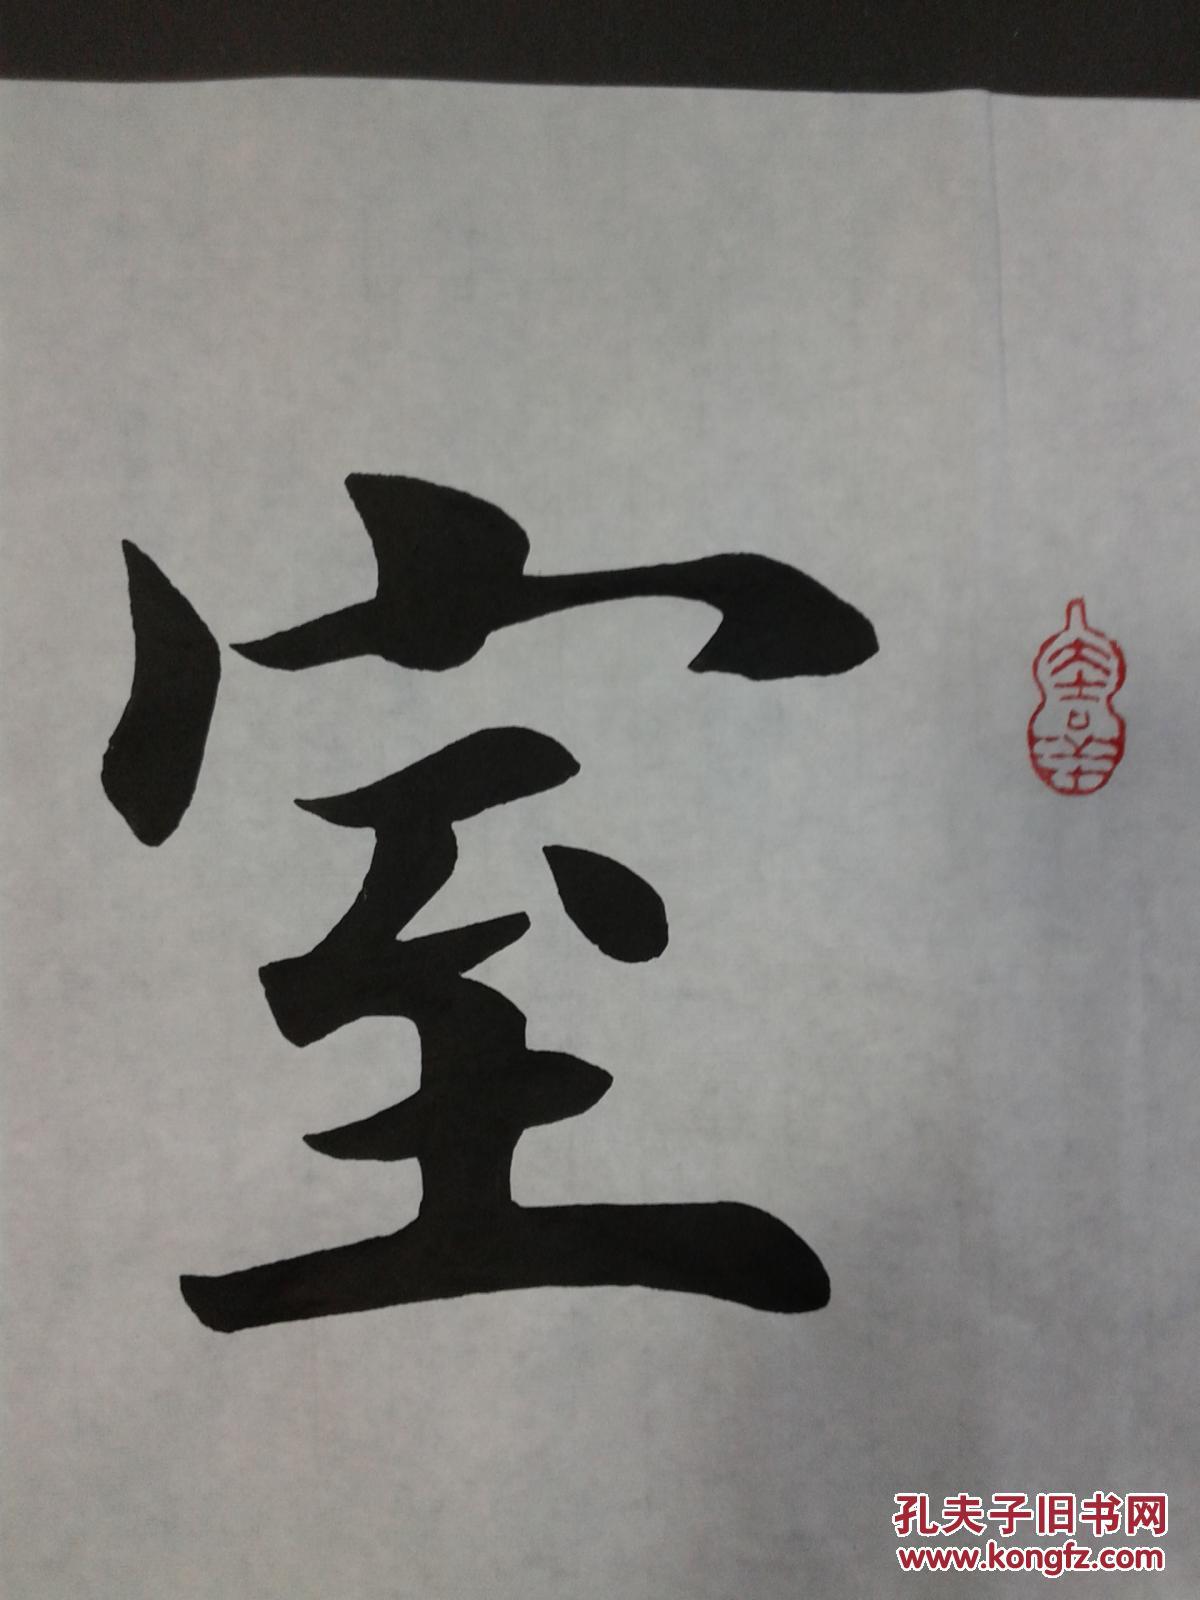 室
孔夫子旧书网
www.kongfz.com